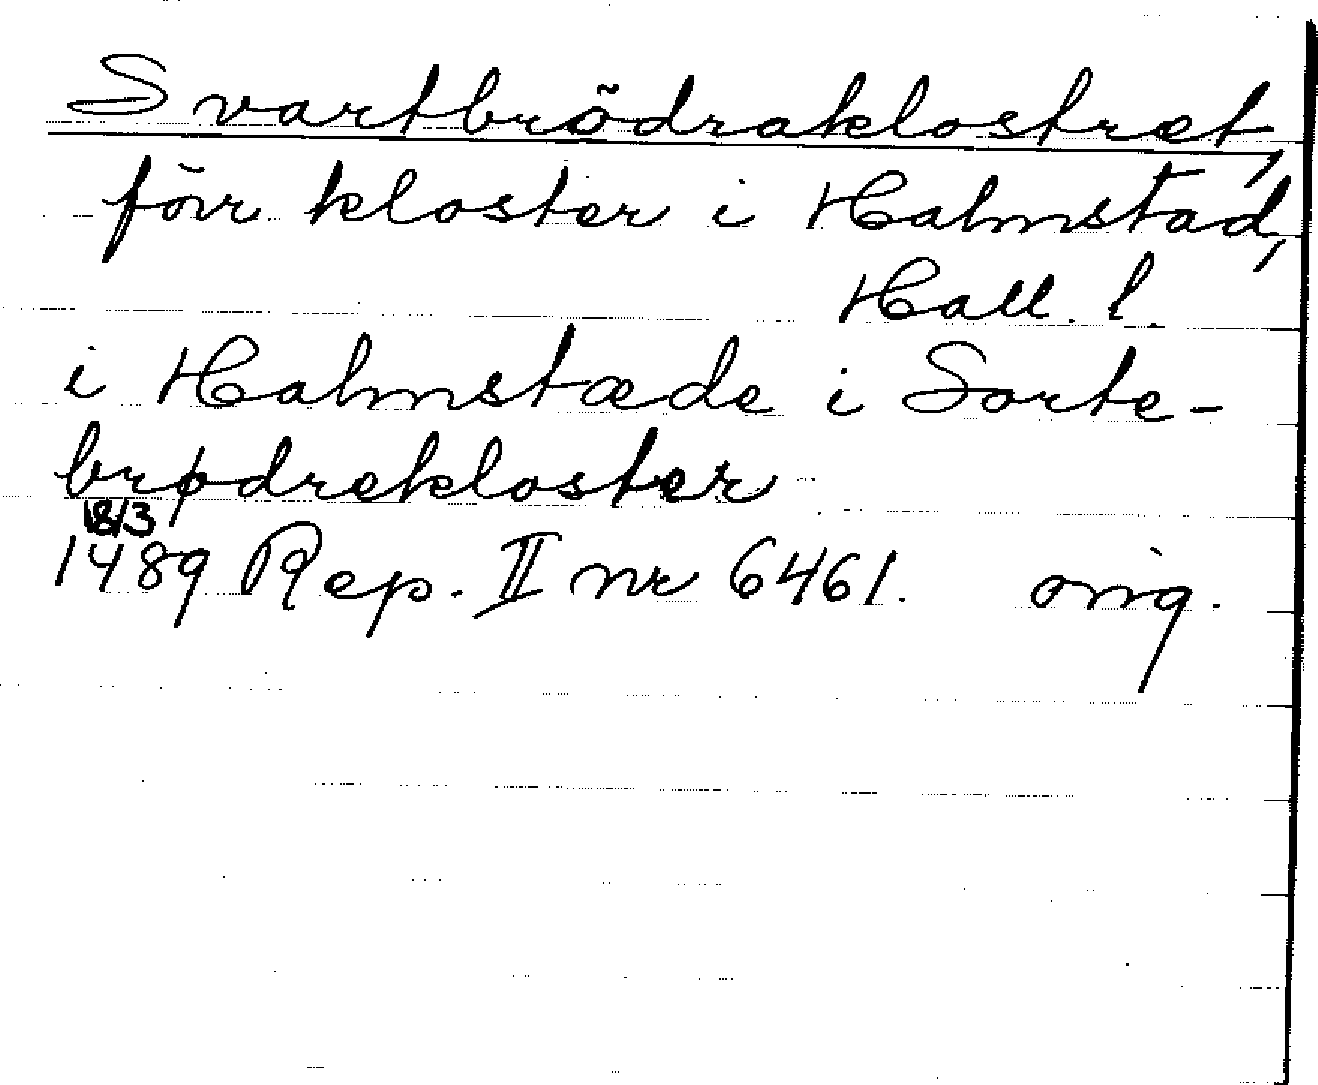 Svartbrödraklostret,
förr kloster i Halmstad,
Hall. l.
i Halmstæde i Sorte-
brødrekloster
18/3
1489 Rep. II nr 6461. orig.